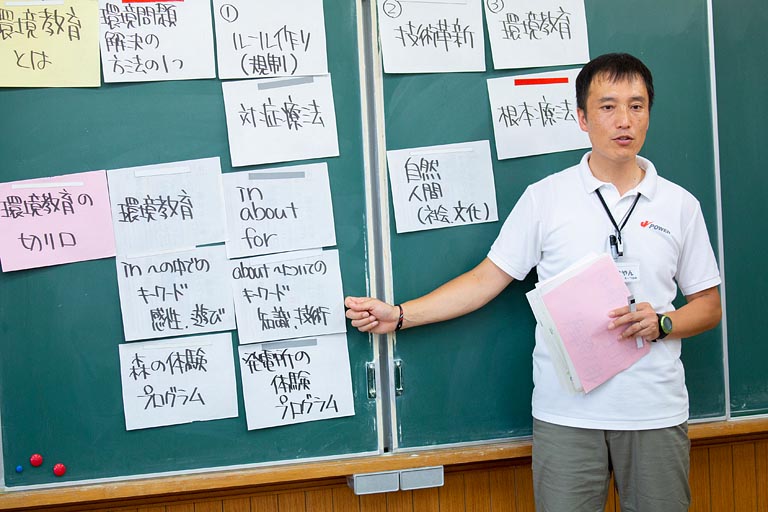 環境教育
とは
環境問題
解決の
方法の1つ
①
ルール作り
(規制)
②
技術革新
③
環境教育
対症療法
根本療法
自然
人間
(社会文化)
環境教育の
切り口
環境教育
in
about
for
in への中での
キーワード
感性、遊び
about へついての
キーワード
知識、技術
森の体験
プログラム
発電所の
体験
プログラム
POWER